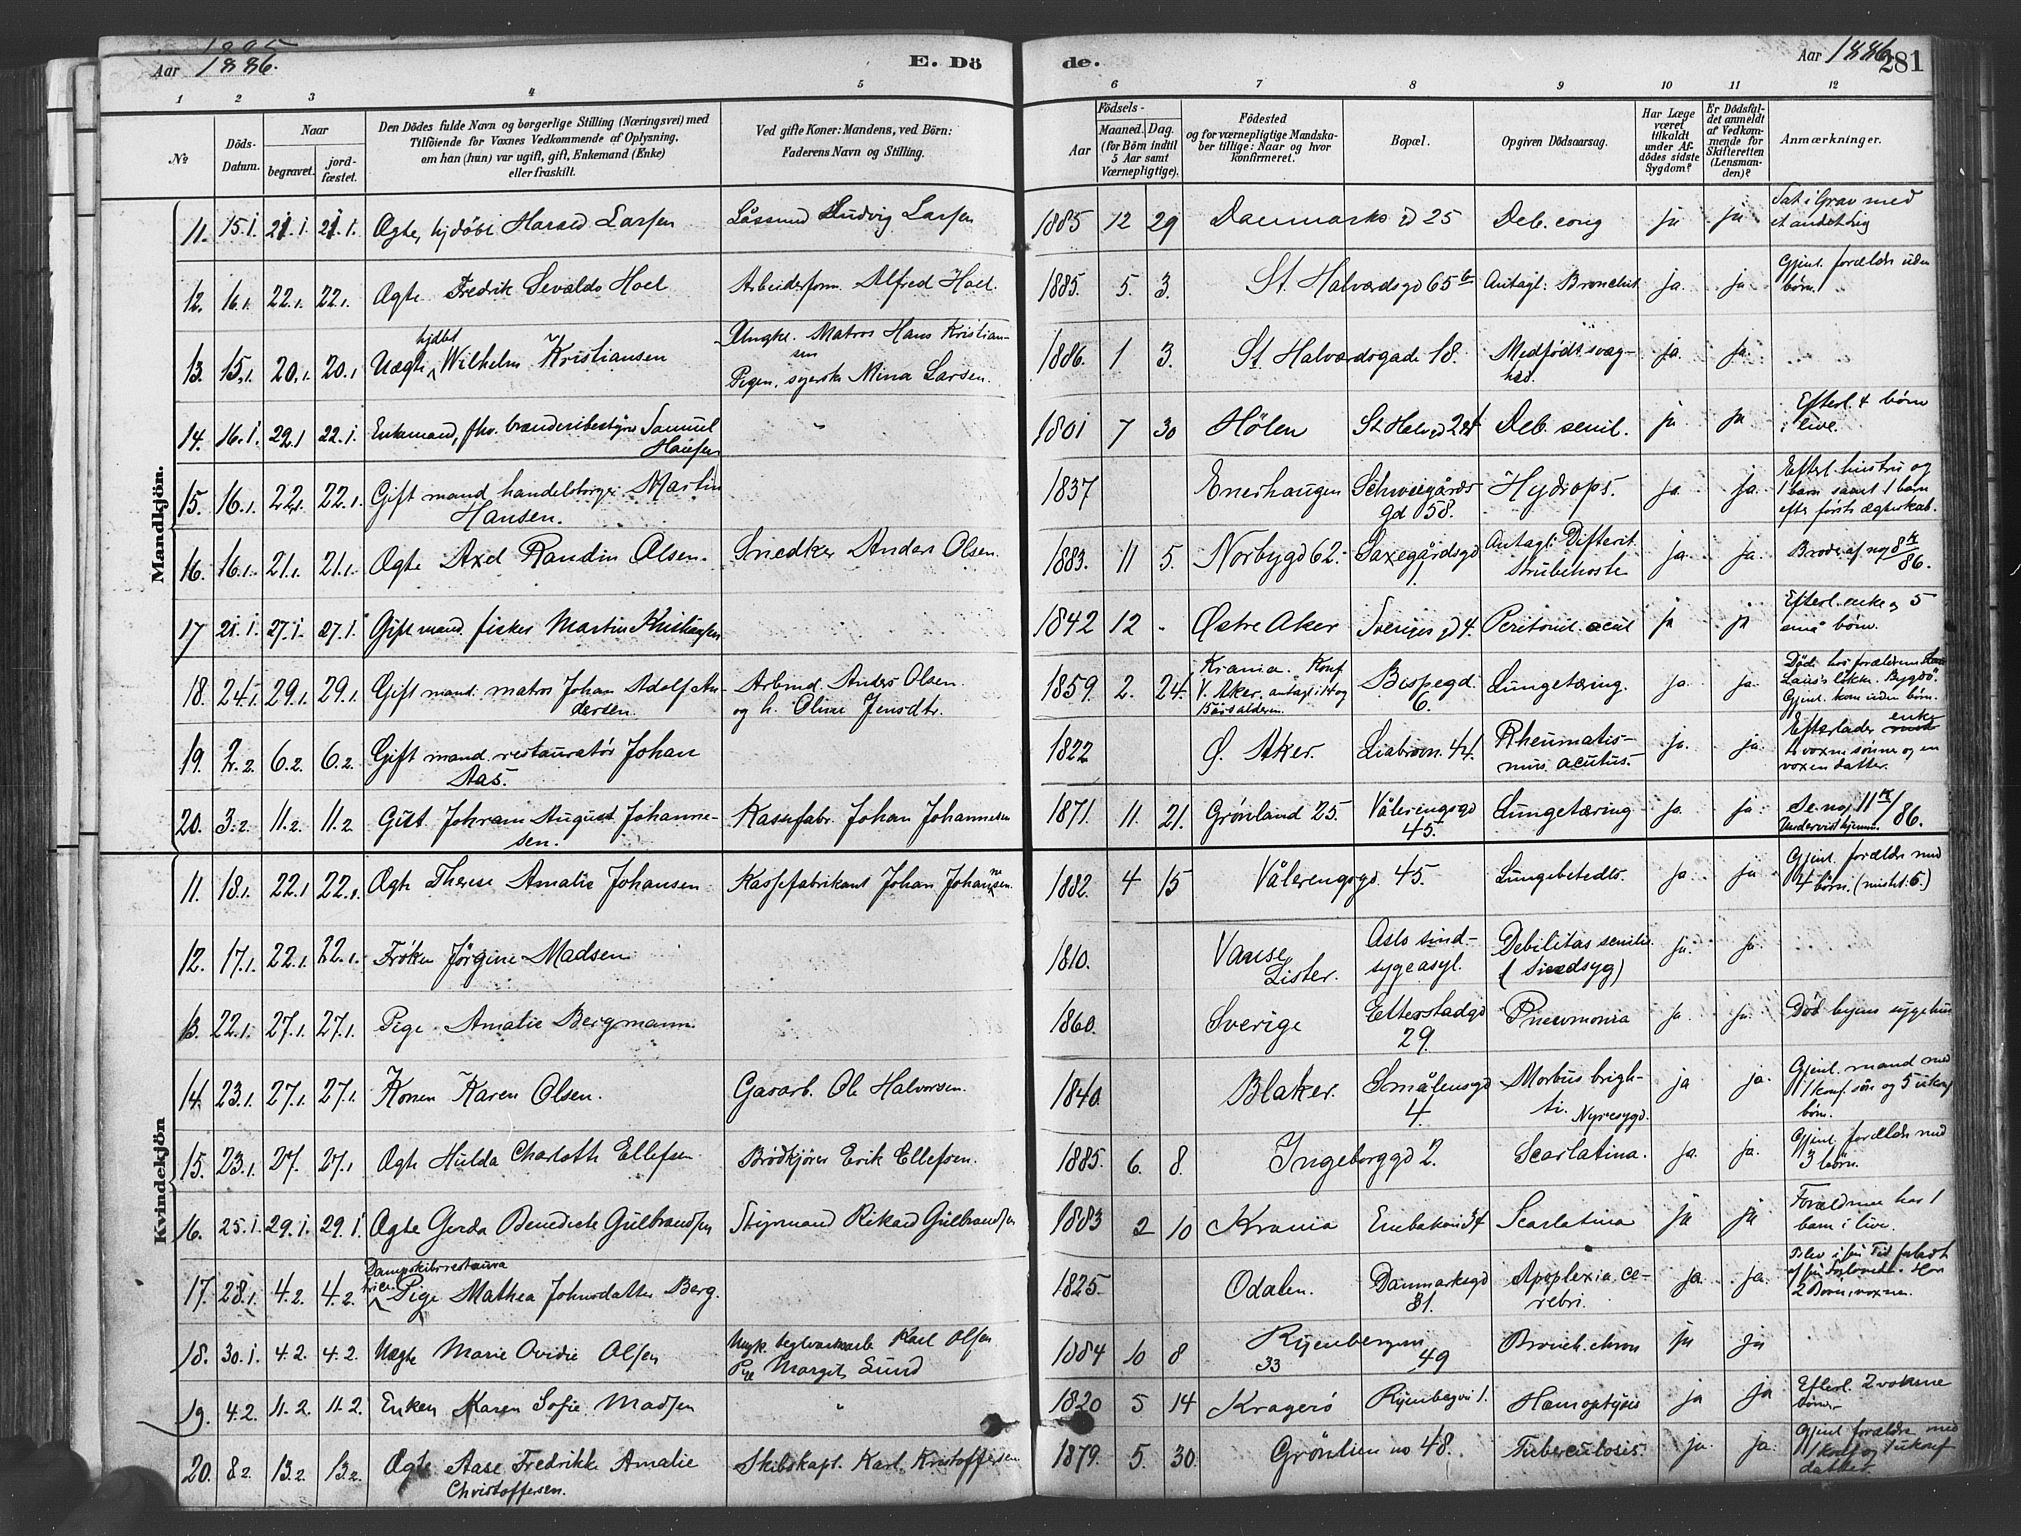 1885
Aar 1886.
E. Dö
de.
Aar 1886.
281
1 2 3 4 5 6 7 8 9 10 11 12
No
Döds-Datum.
Naar
begravet.
jord-fæstet.
Den Dödes fulde Navn og borgerlige Stilling (Næringsvei) med
Tilföiende for Voxnes Vedkommende af Oplysning,
om han (hun) var ugift, gift, Enkemand (Enke)
eller fraskilt.
Ved gifte Koner: Mandens, ved Börn:
Faderens Navn og Stilling.
Födsels-
Aar
Maaned. Dag.
(for Börn indtil
5 Aar samt
Værnepligtige).
Födested
og for værnepligtige Mandska-
ber tillige: Naar og hvor
konfirmeret.
Bopæl.
Opgiven Dödsaarsag.
Har Læge
været
tilkaldt
under Af-
dödes sidste
Sygdom?
Er Dödsfal-
det anmeldt
af Vedkom-
mende for
Skifteretten
(Lensman-
den)?
Anmærkninger.
Mandkjön.
11. 15.1. 21.1. 21.1. Ægte, hjdöbt Harald Larsen Ludvig Larsen 1885 12 29 Danmarksgd 25 Deb. cong ja ja Sat i Grav med
et andet Lig
12. 16.1. 22.1. 22.1. Ægte Fredrik Sevaldo Hoel Arbeiderform. Alfred Hoel. 1885. 5. 3. St. Halvardsgd 65 b Antagl: Bronchit. ja. ja. Gjenl. forældre uden
børn.
13. 15.1. 20.1. 20.1. Uægte hjdøbt Wilhelm Kristiansen Ungkr. Matros Hans Kristian-
sen
Pigen, syerske Mina Larsen. 1886. 1 3. St. Halvardsgade 18. Medfødt svag-
hed. ja. ja.
14. 16.1. 22.1 22.1. Enkemand, fhv. brænderibestyrer Samuel
Hansen " 1801 7 30 Hölen St. Halvgd 28 Deb. senil. ja ja Efterl. 4 børn
i live.
15. 16.1. 22.1. 22.1. Gift mand handelsborger Martin
Hansen. 1837 Enerhaugen Schweigårds
gd 58. Hydrops. ja. ja. Efterl. hustru og
1 barn samt 1 børn
efter første ægteskab.
16. 16.1. 21.1. 21.1. Ægte Axel Randin Olsen. Snedker Anders Olsen. 1883. 11 5. Norbygd 62. Saxegårdsgd
1. Antagl: Difterit.
Strubehoste ja. ja. Broder af no 8
86.
17 21.1. 27.1. 27.1. Gift mand. fisker Martin Kristiansen 1842 12 - Østre Aker Sverigesgd 4. Peritonit. acut ja ja Efterl. enke og 5
små børn.
18. 24.1. 29.1. 29.1. Gift mand. matros Johan Adolf An-
dersen. Arbmd. Anders Olsen
og h. Oline Jensdtr. 1859. 2. 24. Krania. Konf
V. Aker, antagl i 14 og
15 års alderen. Bispegd.
6. Lungetæring. ja. ja. Døde hos forældrene
løkke. Bygdø.
Gjenl. kone uden børn.
19. 2.2. 6.2. 6.2. Gift mand. restauratör Johan
Aas. 1822 Ø. Aker. Liabroen. 44. Rheumatis-
mus. acutus. ja. ja. Efterlader enke
4 voxne sønner og en
voxen datter.
20. 3.2. 11.2. 11.2 Gutt Johan August Johanne-
sen. Kassefabr. Johan Johannesen 1871. 11. 21. Grönland 25. Vålerengsgd
45. Lungetæring ja. ja. Se no 11 /86.
Undervist hjemme.
Kvindekjön
11. 18.1. 22.1 22.1. Ægte Therese Amalie Johansen Kassefabrikant Johan Johannesen. 1882. 4 15 Vålerengsgd 45. Lungebetedts. ja. ja. Gjenl. forældre med
4 börn. (mistet 6.)
12. 17.1. 22.1. 22.1. Fröken Jörgine Madsen 1810. Vanse
Lister. Oslo sind-
sygeasyl. Debilitas senilis
(Sindsyg) ja. ja.
13. 22.1. 27.1. 27.1. Pige. Amalie Bergmann. 1860. Sverige Etterstadgd
29. Pneumonia ja. ja. Död byens sygehus
14. 23.1. 27.1. 27.1. Konen Karen Olsen. Gasarb. Ole Halvorsen. 1840. Blaker. Smålensgd
4. Morbus brigh-
ti. Nyresygd. ja ja. Gjenl. mand med
1 konf. søn og 5 ukonf
børn.
15. 23.1. 27. 27.1 Ægte Hulda Charlotte Ellefsen Brödkjörer Erik Ellefsen. 1885. 6. 8. Ingeborggd 2. Scarlatina. ja. ja. Gjenl. forældre med
3 börn.
16. 25.1. 29.1. 29.1. Ægte Gerda Benedicte Gulbrandsen Styrmand Rikard Gulbrandsen 1883 2 10 Krania Scarlatina ja ja Forældrene har 1
barn i live.
17. 28.1. 4.2. 4.2. Dampskibsrestaura
trice Pige Mathea Johnsdatter Berg. 1825. Odalen. Danmarksgd
31. Apoplexia. ce-
rebri. ja. ja. Blev i sin Tid forladt
af sin Forlovede. Har
2 Børn, voxne.
18. 30.1. 4.2. 4.2. Uægte Marie Ovidie Olsen Ungk. teglværksarb Karl Olsen
Pige Margit Lund 1884 10 8 Ryenbergvn
33 49 Bronch. chron ja ja
19. 4.2. 11.2. 11.2. Enken Karen Sofie Madsen " 1820 5 14 Kragerö Ryenbergvn 1. Hæmoptysis ja ja Efterl. 2 voksne
sönner
20. 8.2. 13.2 13.2. Ægte Aase Fredrikke Amalie
Christoffersen. Skibskapt. Karl Kristoffersen 1879. 5. 30 Grönlien no 48. Tuberculosis. ja ja. Gjenl forældre med
1 konf og 1 ukonf
datter.